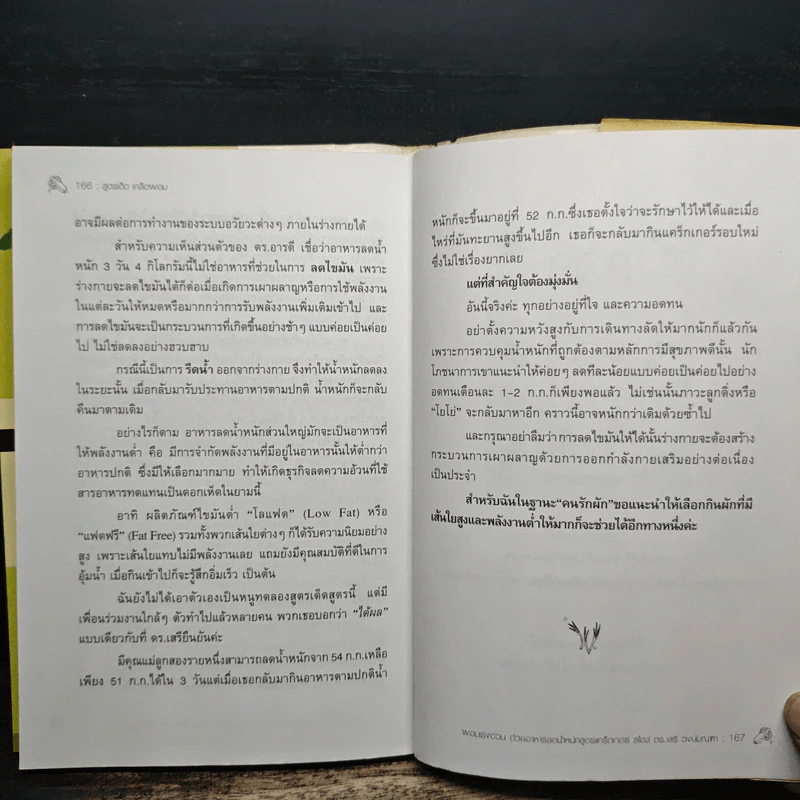 166 : สูตรเด็ด เคล็ดผอม
อาจมีผลต่อการทำงานของระบบอวัยวะต่างๆ ภายในร่างกายได้
สำหรับความเห็นส่วนตัวของ ดร.อารดี เชื่อว่าอาหารลดน้ำ
หนัก 3 วัน 4 กิโลกรัมนี้ไม่ใช่อาหารที่ช่วยในการ ลดไขมัน เพราะ
ร่างกายจะลดไขมันได้ก็ต่อเมื่อเกิดการเผาผลาญหรือการใช้พลังงาน
ในแต่ละวันให้หมดหรือมากกว่าการรับพลังงานเพิ่มเติมเข้าไป และ
การลดไขมันจะเป็นกระบวนการที่เกิดขึ้นอย่างช้าๆ แบบค่อยเป็นค่อย
ไป ไม่ใช่ลดลงอย่างฮวบฮาบ
กรณีนี้เป็นการ รีดน้ำ ออกจากร่างกาย จึงทำให้น้ำหนักลดลง
ในระยะนั้น เมื่อกลับมารับประทานอาหารตามปกติ น้ำหนักก็จะกลับ
คืนมาตามเดิม
อย่างไรก็ตาม อาหารลดน้ำหนักส่วนใหญ่มักจะเป็นอาหารที่
ให้พลังงานต่ำ คือ มีการจำกัดพลังงานที่มีอยู่ในอาหารนั้นให้ต่ำกว่า
อาหารปกติ ซึ่งมีให้เลือกมากมาย ทำให้เกิดธุรกิจลดความอ้วนที่ใช้
สารอาหารทดแทนเป็นดอกเห็ดในยามนี้
อาทิ ผลิตภัณฑ์ไขมันต่ำ "โลแฟต" (Low Fat) หรือ
"แฟตฟรี" (Fat Free) รวมทั้งพวกเส้นใยต่างๆ ก็ได้รับความนิยมอย่าง
สูง เพราะเส้นใยแทบไม่มีพลังงานเลย แถมยังมีคุณสมบัติที่ดีในการ
อุ้มน้ำ เมื่อกินเข้าไปก็จะรู้สึกอิ่มเร็ว เป็นต้น
ฉันยังไม่ได้เอาตัวเองเป็นหนูทดลองสูตรเด็ดสูตรนี้ แต่มี
เพื่อนร่วมงานใกล้ๆ ตัวทำไปแล้วหลายคน พวกเธอบอกว่า "ได้ผล"
แบบเดียวกับที่ ดร.เสรียืนยันค่ะ
มีคุณแม่ลูกสองรายหนึ่งสามารถลดน้ำหนักจาก 54 ก.ก.เหลือ
เพียง 51 ก.ก.ได้ใน 3 วันแต่เมื่อเธอกลับมากินอาหารตามปกติน้ำ
หนักก็จะขึ้นมาอยู่ที่ 52 ก.ก.ซึ่งเธอตั้งใจว่าจะรักษาไว้ให้ได้และเมื่อ
ไหร่ที่มันทะยานสูงขึ้นไปอีก เธอก็จะกลับมากินแคร็กเกอร์รอบใหม่
ซึ่งไม่ใช่เรื่องยากเลย
แต่ที่สำคัญใจต้องมุ่งมั่น
อันนี้จริงค่ะ ทุกอย่างอยู่ที่ใจ และความอดทน
อย่าตั้งความหวังสูงกับการเดินทางลัดให้มากนักก็แล้วกัน
เพราะการควบคุมน้ำหนักที่ถูกต้องตามหลักการมีสุขภาพดีนั้น นัก
โภชนาการเขาแนะนำให้ค่อยๆ ลดทีละน้อยแบบค่อยเป็นค่อยไปอย่าง
อดทนเดือนละ 1-2 ก.ก.ก็เพียงพอแล้ว ไม่เช่นนั้นภาวะลูกดิ่งหรือ
"โยโย่" จะกลับมาหาอีก คราวนี้อาจหนักกว่าเดิมด้วยซ้ำไป
และกรุณาอย่าลืมว่าการลดไขมันให้ได้นั้นร่างกายจะต้องสร้าง
กระบวนการเผาผลาญด้วยการออกกำลังกายเสริมอย่างต่อเนื่อง
เป็นประจำ
สำหรับฉันในฐานะ"คนรักผัก"ขอแนะนำให้เลือกกินผักที่มี
เส้นใยสูงและพลังงานต่ำให้มากก็จะช่วยได้อีกทางหนึ่งค่ะ
ผอมเร่งด่วน ด้วยอาหารลดน้ำหนักสูตรแคร็กเกอร์ สไตล์ ดร.เสรี วงษ์มณฑา : 167